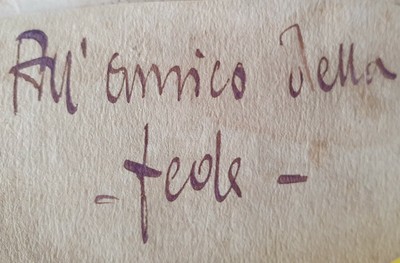 All' amico della
- fede -